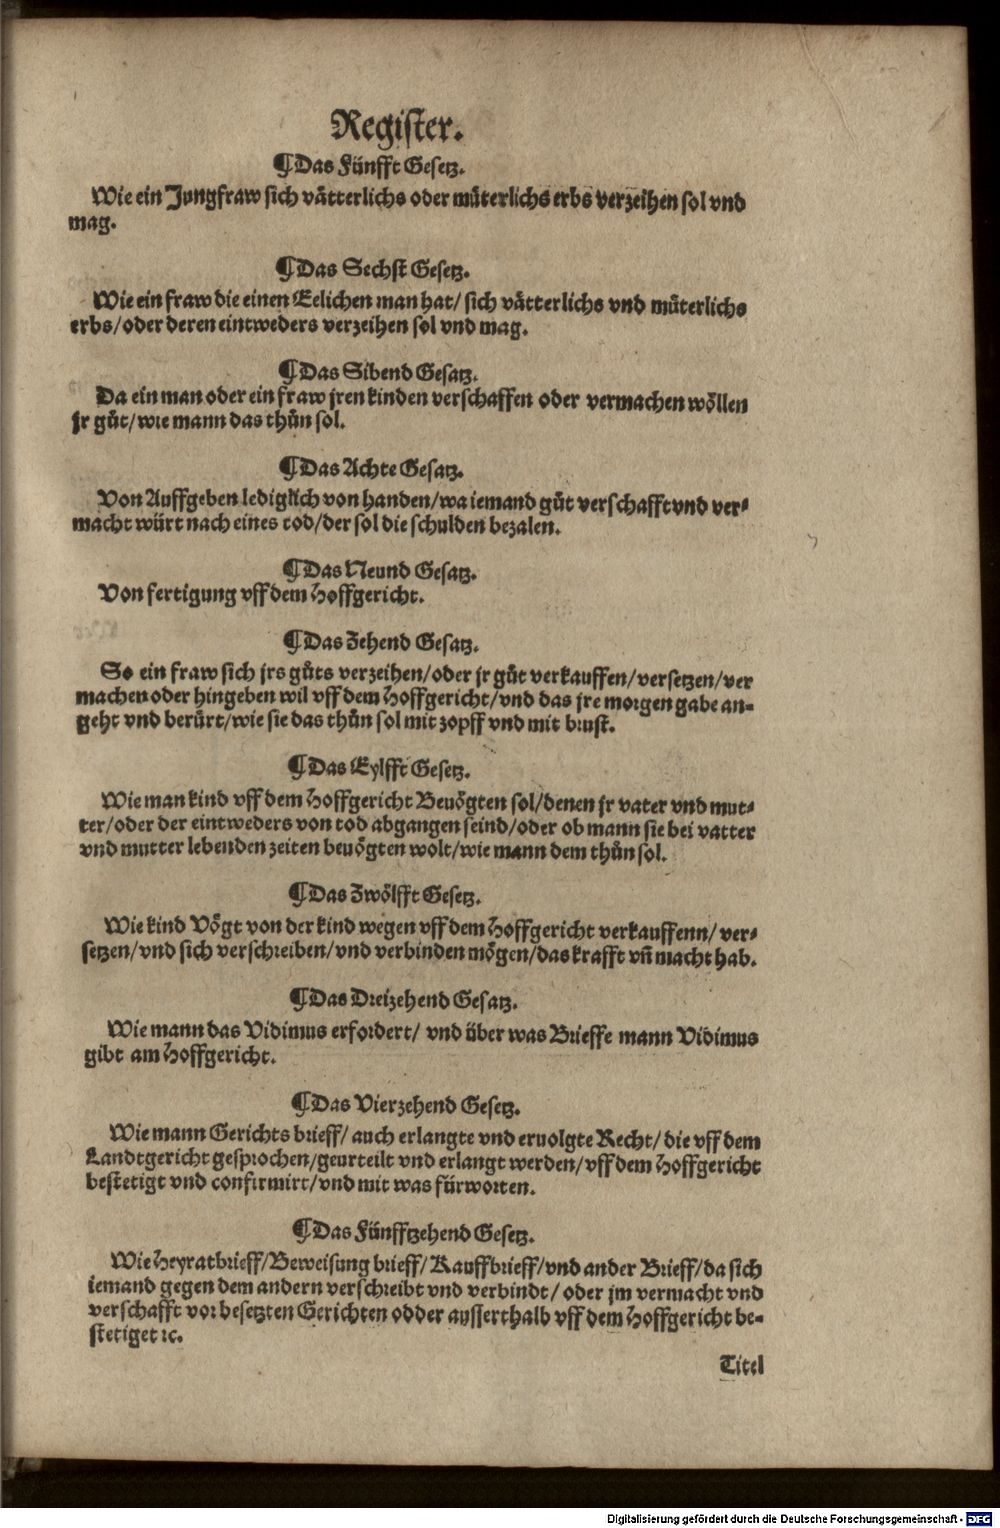 Register.
¶Das Fünfft Gesetz.
Wie ein Jungfraw sich vätterlichs oder müterlichs erbs verzeihen sol vnd
mag.
¶Das Sechst Gesetz.
Wie ein fraw die einen Eelichen man hat/ sich vätterlichs vnd müterlichs
erbs/oder deren eintweders verzeihen sol vnd mag.
¶Das Sibend Gesatz.
Da ein man oder ein fraw jren kinden verschaffen oder vermachen wöllen
jr gůt/wie mann das thůn sol.
¶Das Achte Gesatz.
Von Auffgeben lediglich von handen/wa iemand gůt verschafft vnd ver⸗
macht würt nach eines tod/der sol die schulden bezalen.
¶Das Neund Gesatz.
Von fertigung vff dem Hoffgericht.
¶Das Zehend Gesatz.
So ein fraw sich jrs gůts verzeihen/oder jr gůt verkauffen/versetzen/ver
machen oder hingeben wil vff dem Hoffgericht/vnd das jre morgen gabe an⸗
geht vnd berürt/wie sie das thůn sol mit zopff vnd mit brust.
¶Das Eylfft Gesetz.
Wie man kind vff dem Hoffgericht Beuögten sol/denen jr vater vnd mut⸗
ter/oder der eintweders von tod abgangen seind/oder ob mann sie bei vatter
vnd mutter lebenden zeiten beuögten wolt/wie mann dem thůn sol.
¶Das Zwölfft Gesetz.
Wie kind Vögt von der kind wegen vff dem Hoffgericht verkauffenn/ ver⸗
setzen/vnd sich verschreiben/vnd verbinden mögen/das krafft vñ macht hab.
¶Das Dreizehend Gesatz.
Wie mann das Vidimus erfordert/ vnd über was Brieffe mann Vidimus
gibt am Hoffgericht.
¶Das Vierzehend Gesetz.
Wie mann Gerichts brieff/ auch erlangte vnd eruolgte Recht/ die vff dem
Landtgericht gesprochen/geurteilt vnd erlangt werden/vff dem Hoffgericht
bestetigt vnd confirmirt/vnd mit was fürworten.
¶Das Fünfftzehend Gesetz.
Wie Heyratbrieff/Beweisung brieff/Kauffbrieff/vnd ander Brieff/da sich
iemand gegen dem andern verschreibt vnd verbindt/ oder jm vermacht vnd
verschafft vor besetzten Gerichten odder ausserthalb vff dem Hoffgericht be⸗
stetiget ꝛc.
Titel
Digitalisierung gefördert durch die Deutsche Forschungsgemeinschaft - DFG